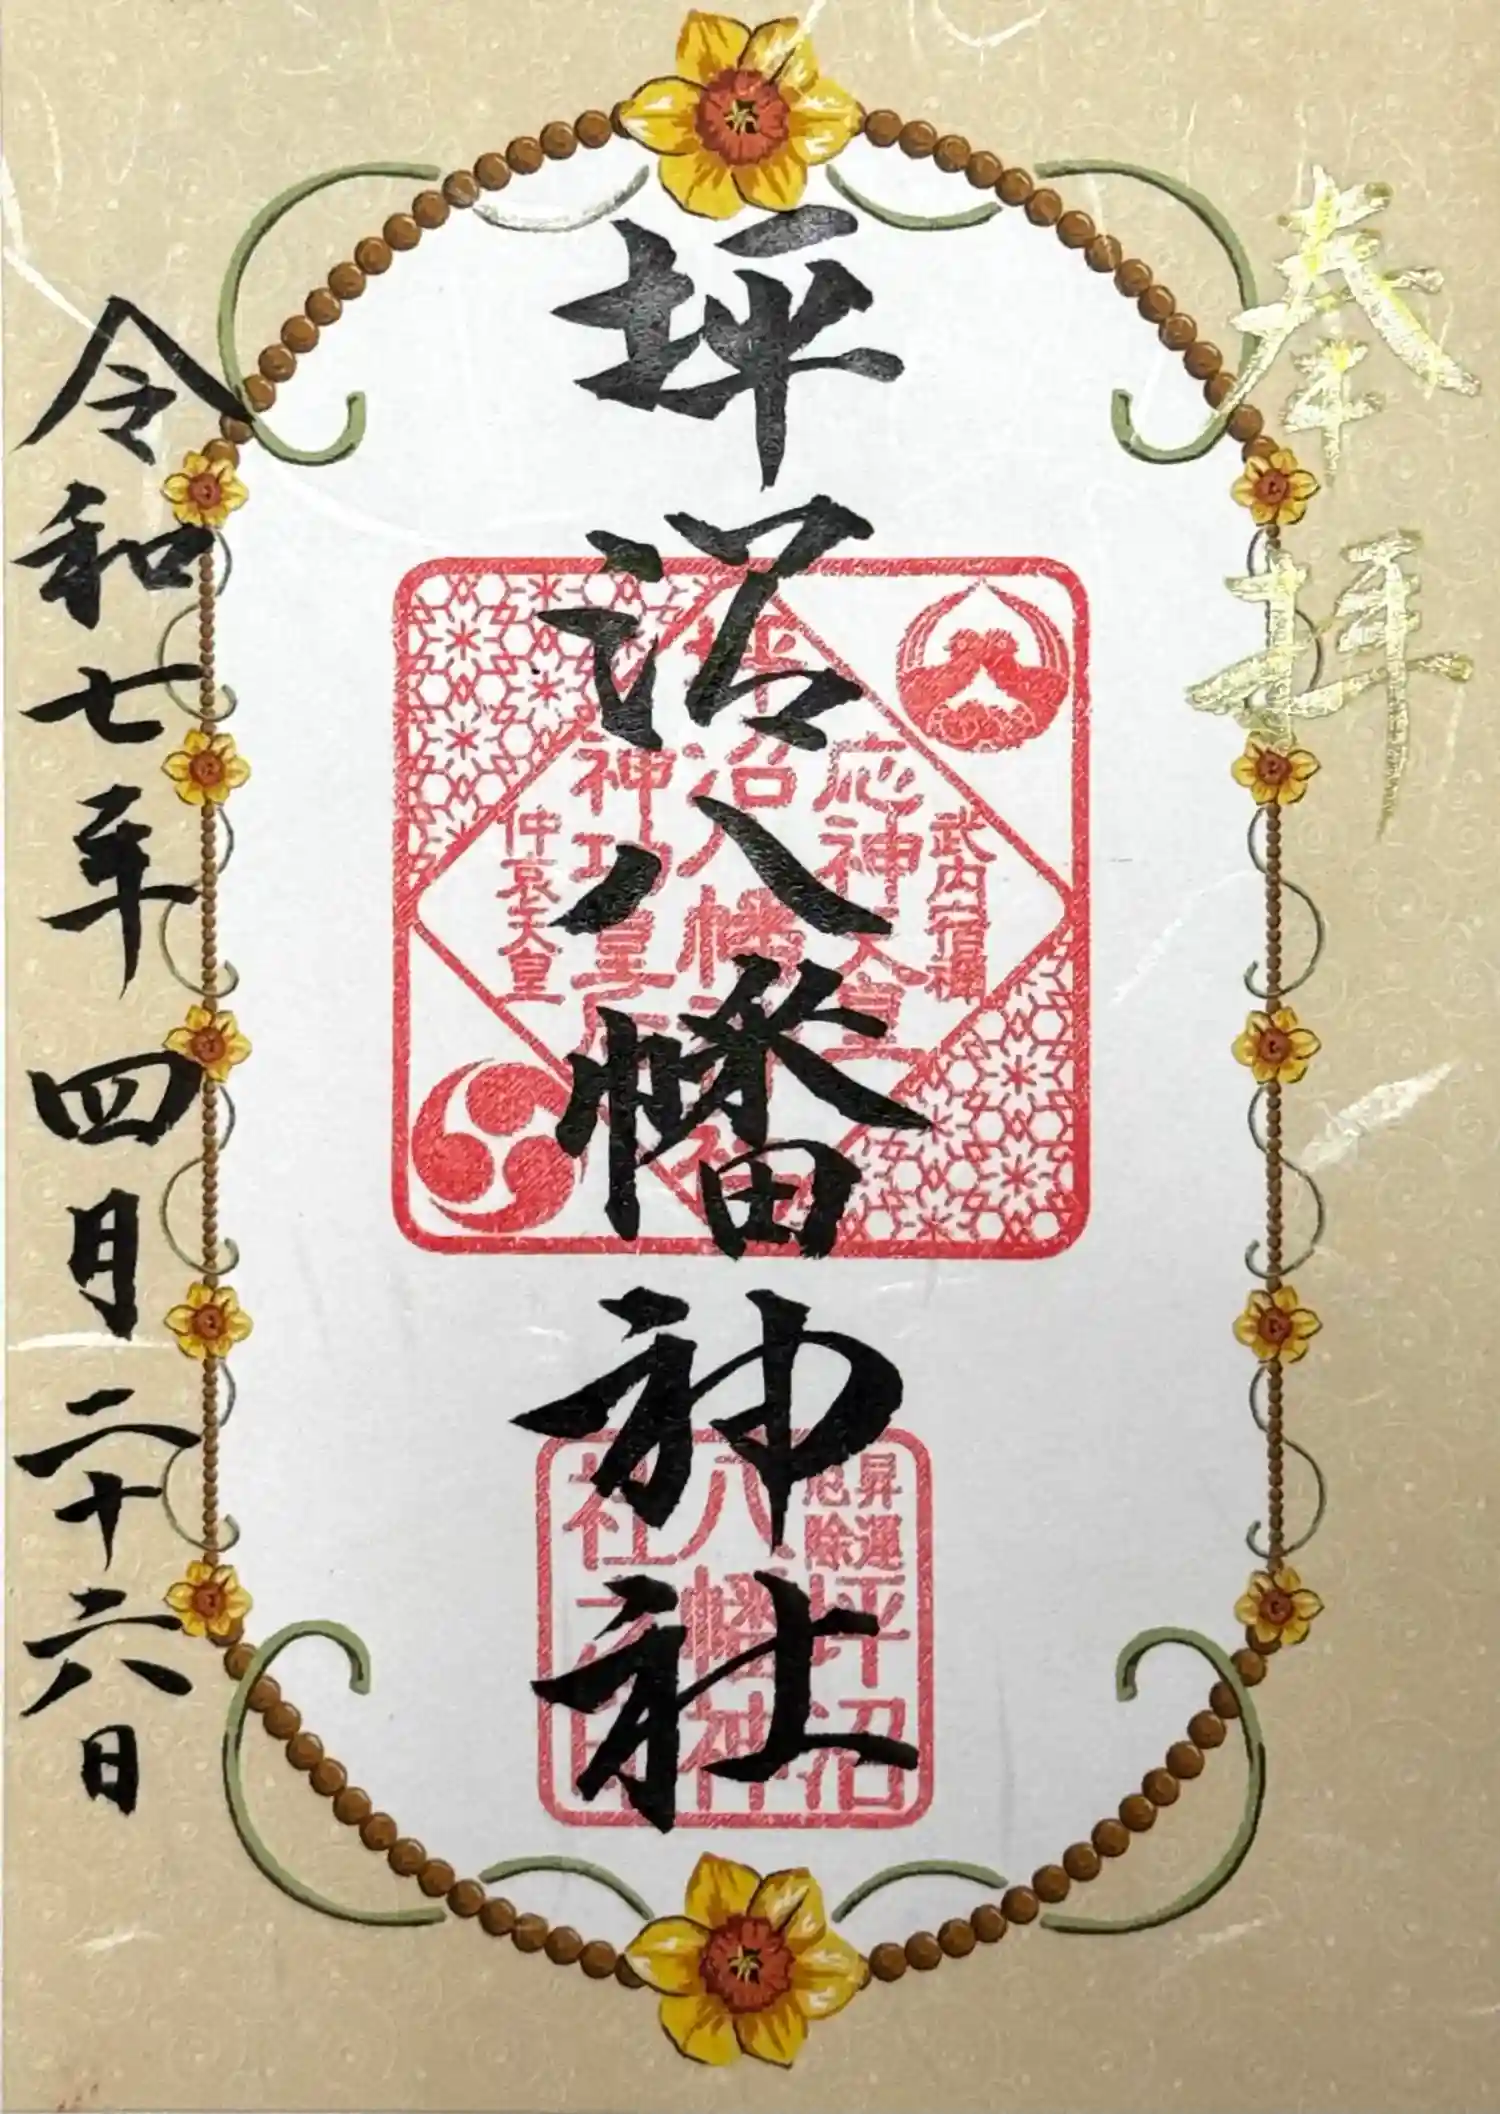 奉拝
坪沼八幡神社
武内宿禰
応神天皇
坪沼八幡神社
神功皇后
仲哀天皇
昇運
厄除
坪沼
八幡神
社之印
令和七年四月二十六日